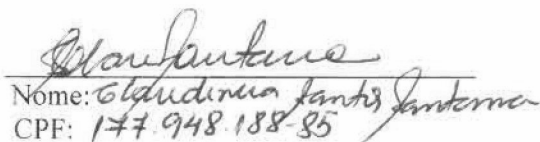 Santana
Nome: Claudineia Santos Santana
CPF: 177.948.188-85